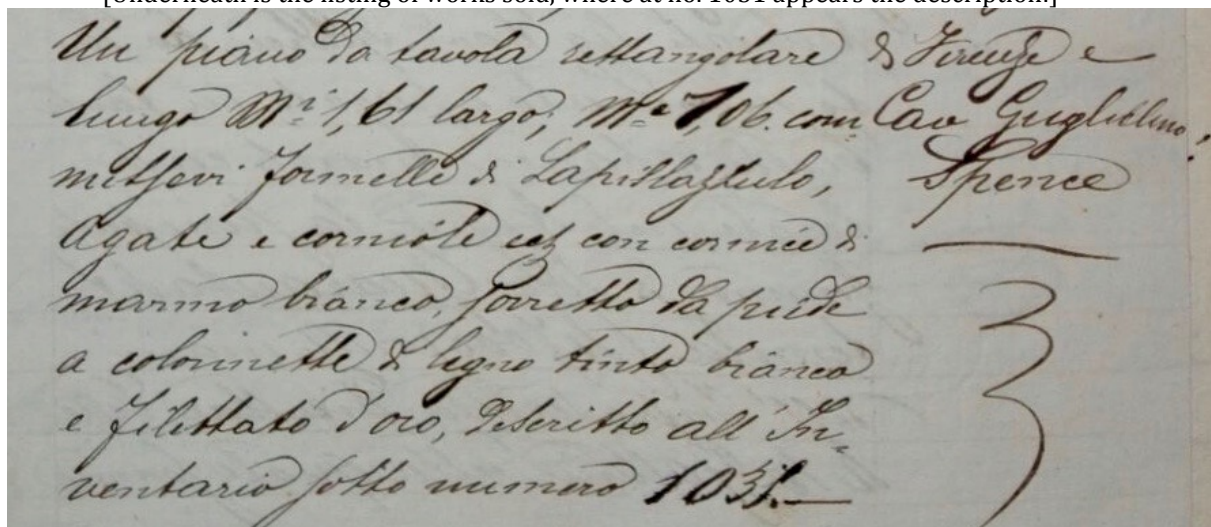 [Underneath is the listing of works sold, where at no. 1031 appears the description:]
Un piano da tavola rettangolare
lungo Mi 1,61 largo, Me 1,06. com
messevi formelle di Lapislazzulo,
Agate e corniole ecc con cornice di
marmo bianco, sorretto da piede
a colonnette di legno tinto bianco
e filettato d'oro, descritto all' In-
ventario sotto numero 1031.—
di Firenze e
Cav Guglielmo,
Spence